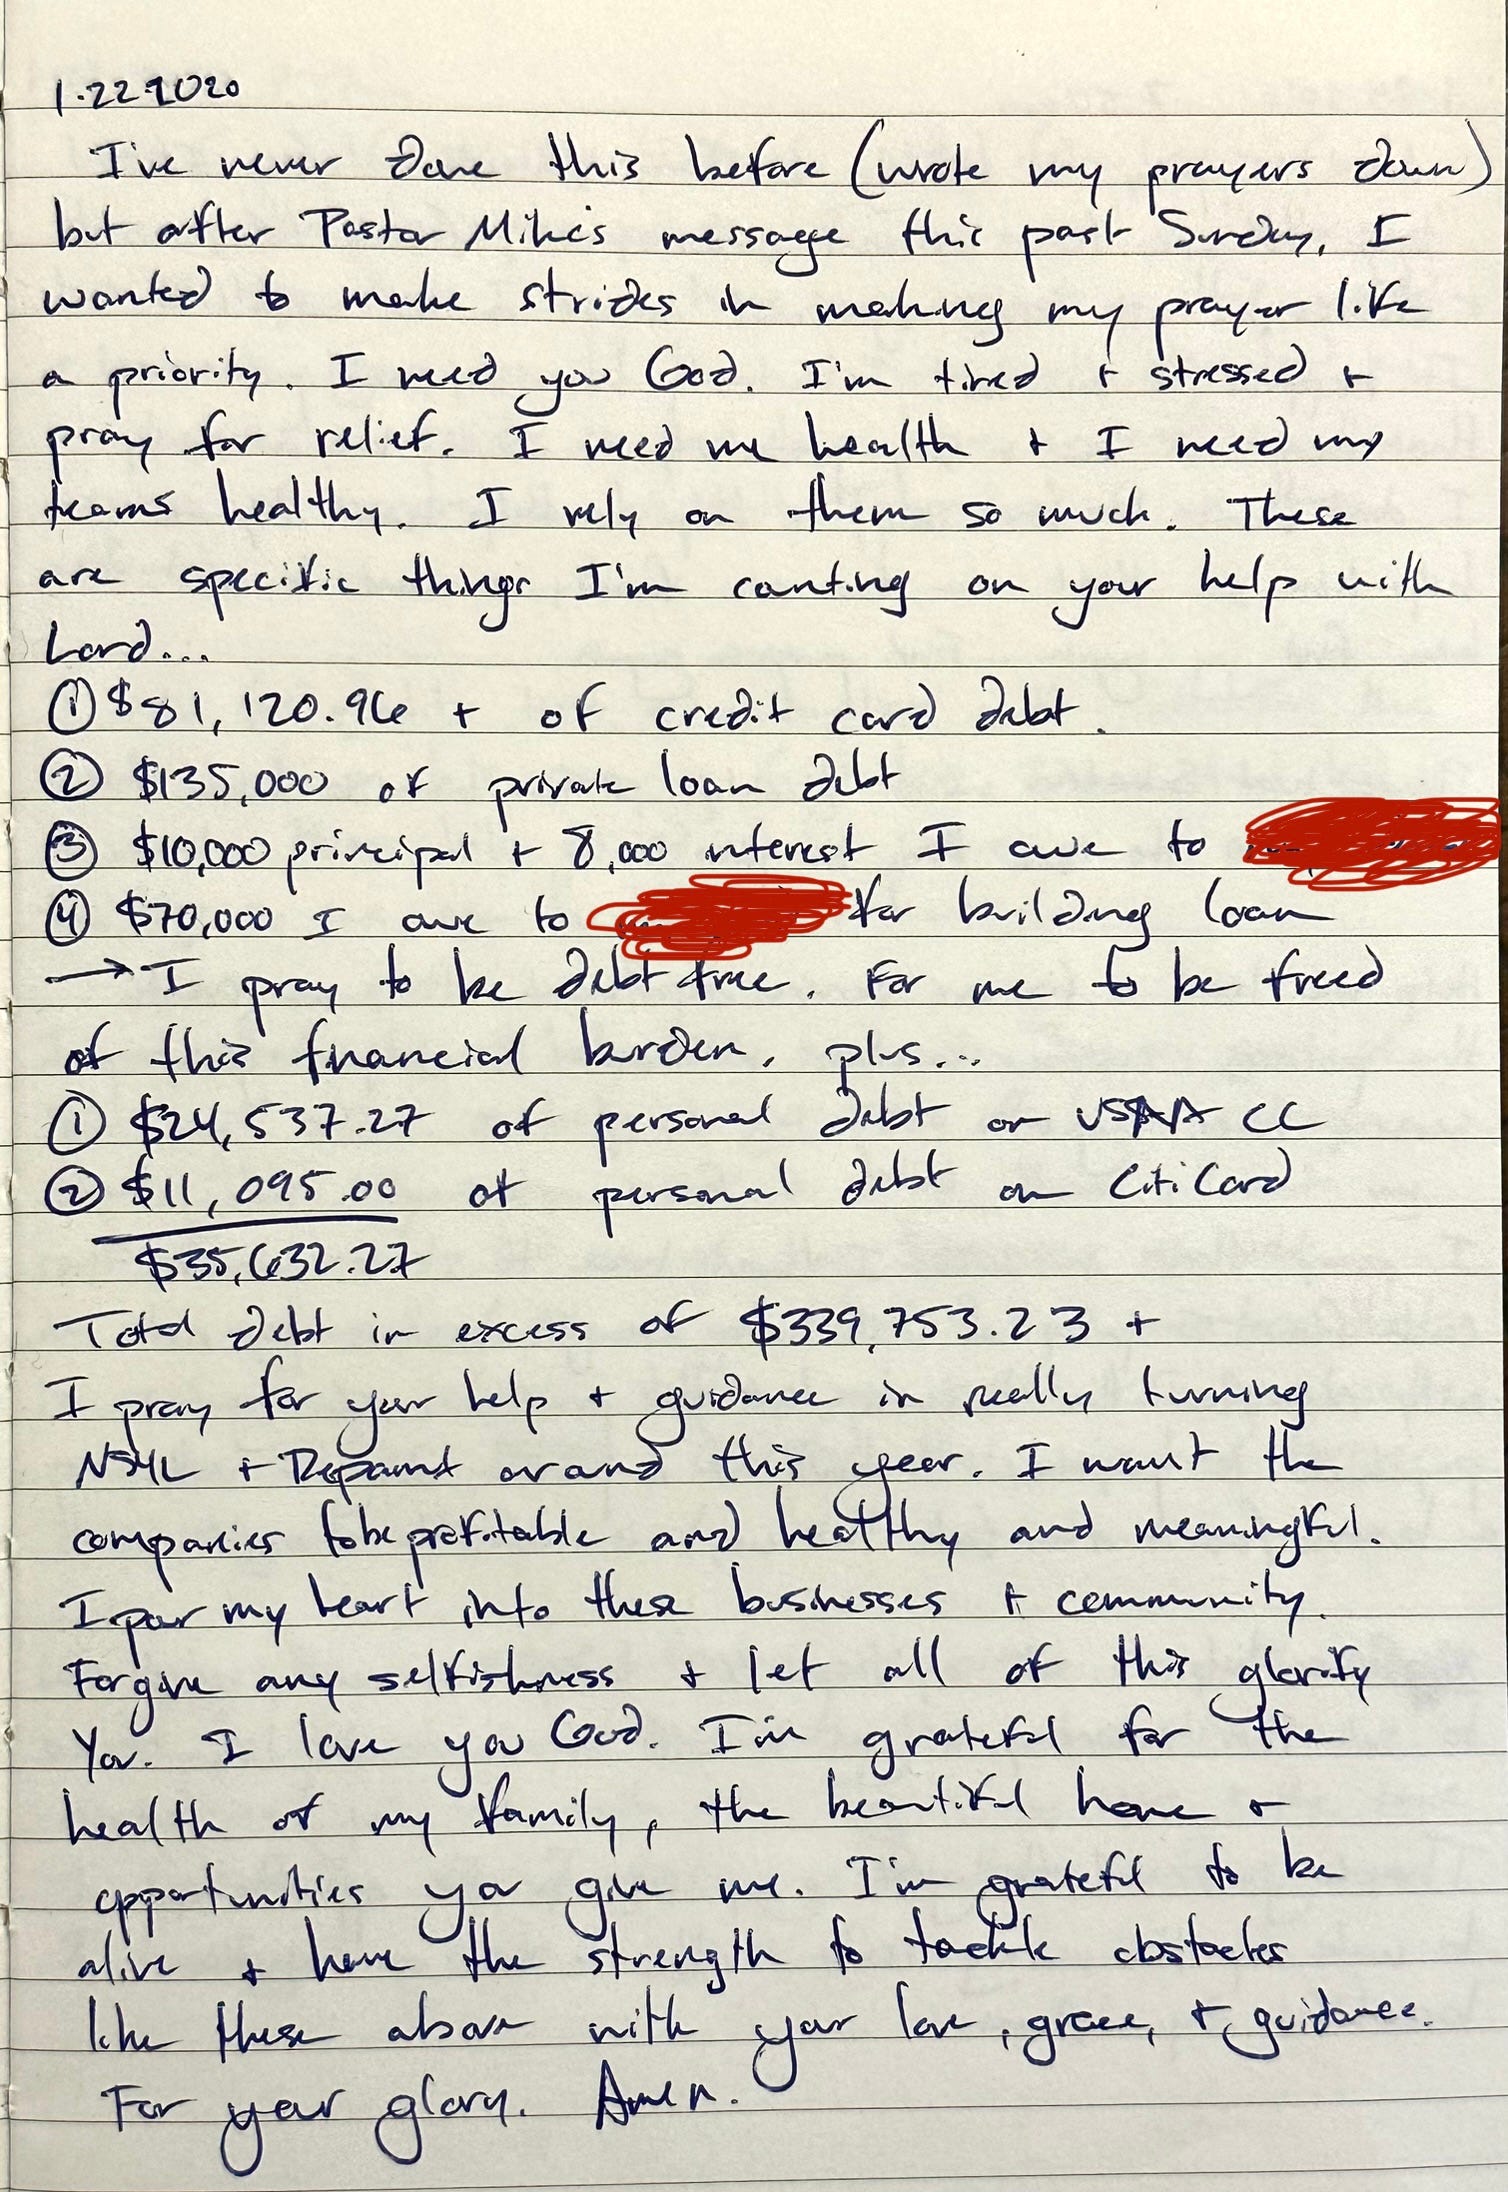 1.22.2020
I've never done this before (wrote my prayers down)
but after Pastor Mike's message this past Sunday, I
wanted to make strides in making my prayer life
a priority. I need you God. I'm tired + stressed +
pray for relief. I need me health + I need my
teams healthy. I rely on them so much. These
are specific things I'm counting on your help with
Lord...
① $81,120.96 + of credit card debt.
② $135,000 of private loan debt
③ $10,000 principal + 8,000 interest I owe to
④ $70,000 I owe to for building loan
→ I pray to be debt free. For me to be freed
of this financial burden, plus...
① $24,537.27 of personal debt on USAA CC
② $11,095.00 of personal debt on Citi Card
$35,632.27
Total debt in excess of $339,753.23 +
I pray for your help + guidance in really turning
+ around this year. I want the
companies to be profitable and healthy and meaningful.
I pour my heart into these businesses + community.
Forgive any selfishness + let all of this glorify
You. I love you God. I'm grateful for the
health of my family, the beautiful home +
opportunities you give me. I'm grateful to be
alive + have the strength to tackle obstacles
like these above with your love, grace, + guidance.
For your glory. Amen.